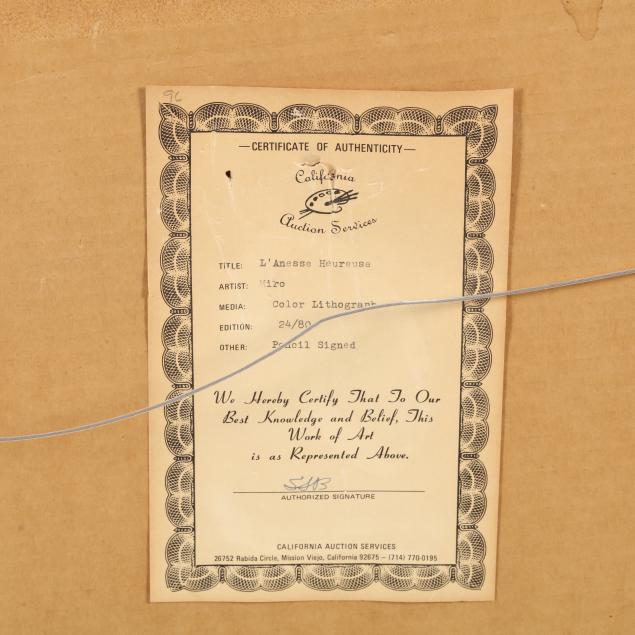 96
—CERTIFICATE OF AUTHENTICITY—
California
Auction Services
TITLE: L'Anesse Heureuse
ARTIST: Miro
MEDIA: Color Lithograph
EDITION: 24/80
OTHER: Pencil Signed
We Hereby Certify That To Our
Best Knowledge and Belief, This
Work of Art
is as Represented Above.
AUTHORIZED SIGNATURE
CALIFORNIA AUCTION SERVICES
26752 Rabida Circle, Mission Viejo, California 92675 – (714) 770-0195